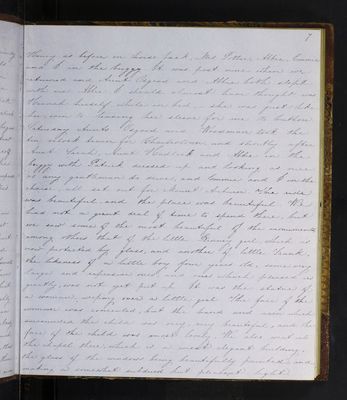 7
thing as before in horse back, Mrs Potter, Abbie, Emmie
and I in the buggy. It was past nine when we
returned and Aunt Osgood and Abbie both slept
with me. Abie I should almost have thought was
Hannah herself while in bed, she was just like
her, even to lending her sleeve for me to button.
Saturday Aunts Osgood and Woodman took the
ten o'clock train for and shortly after
Aunt Sarah, and Abbie in the
buggy with Patrick dressed up and looking as nice
as any gentleman do drive, and Emmie and I in the
chaise, all set out for Mount Auburn. The ride
was beautiful, and the place was beautiful. We
had not a great deal of time to spend there, but
we saw some of the most beautiful of the monuments
among others that of the little girl, which is
now protected by glass, and another of little Frank,
the likeness of a little boy four years old, some very
large and expensive ones, and one which pleased us
greatly, was not yet put up. It was the statue of
a woman, weeping over a little girl. The face of the
woman was concealed, but the hand and arm which
the child was very, very beautiful, and the
face of the child was most lovely. We also went into
the chapel there, which is a most elegant building,
the glass of the windows being beautifully painted and
making a somewhat subdued but pleasant light.